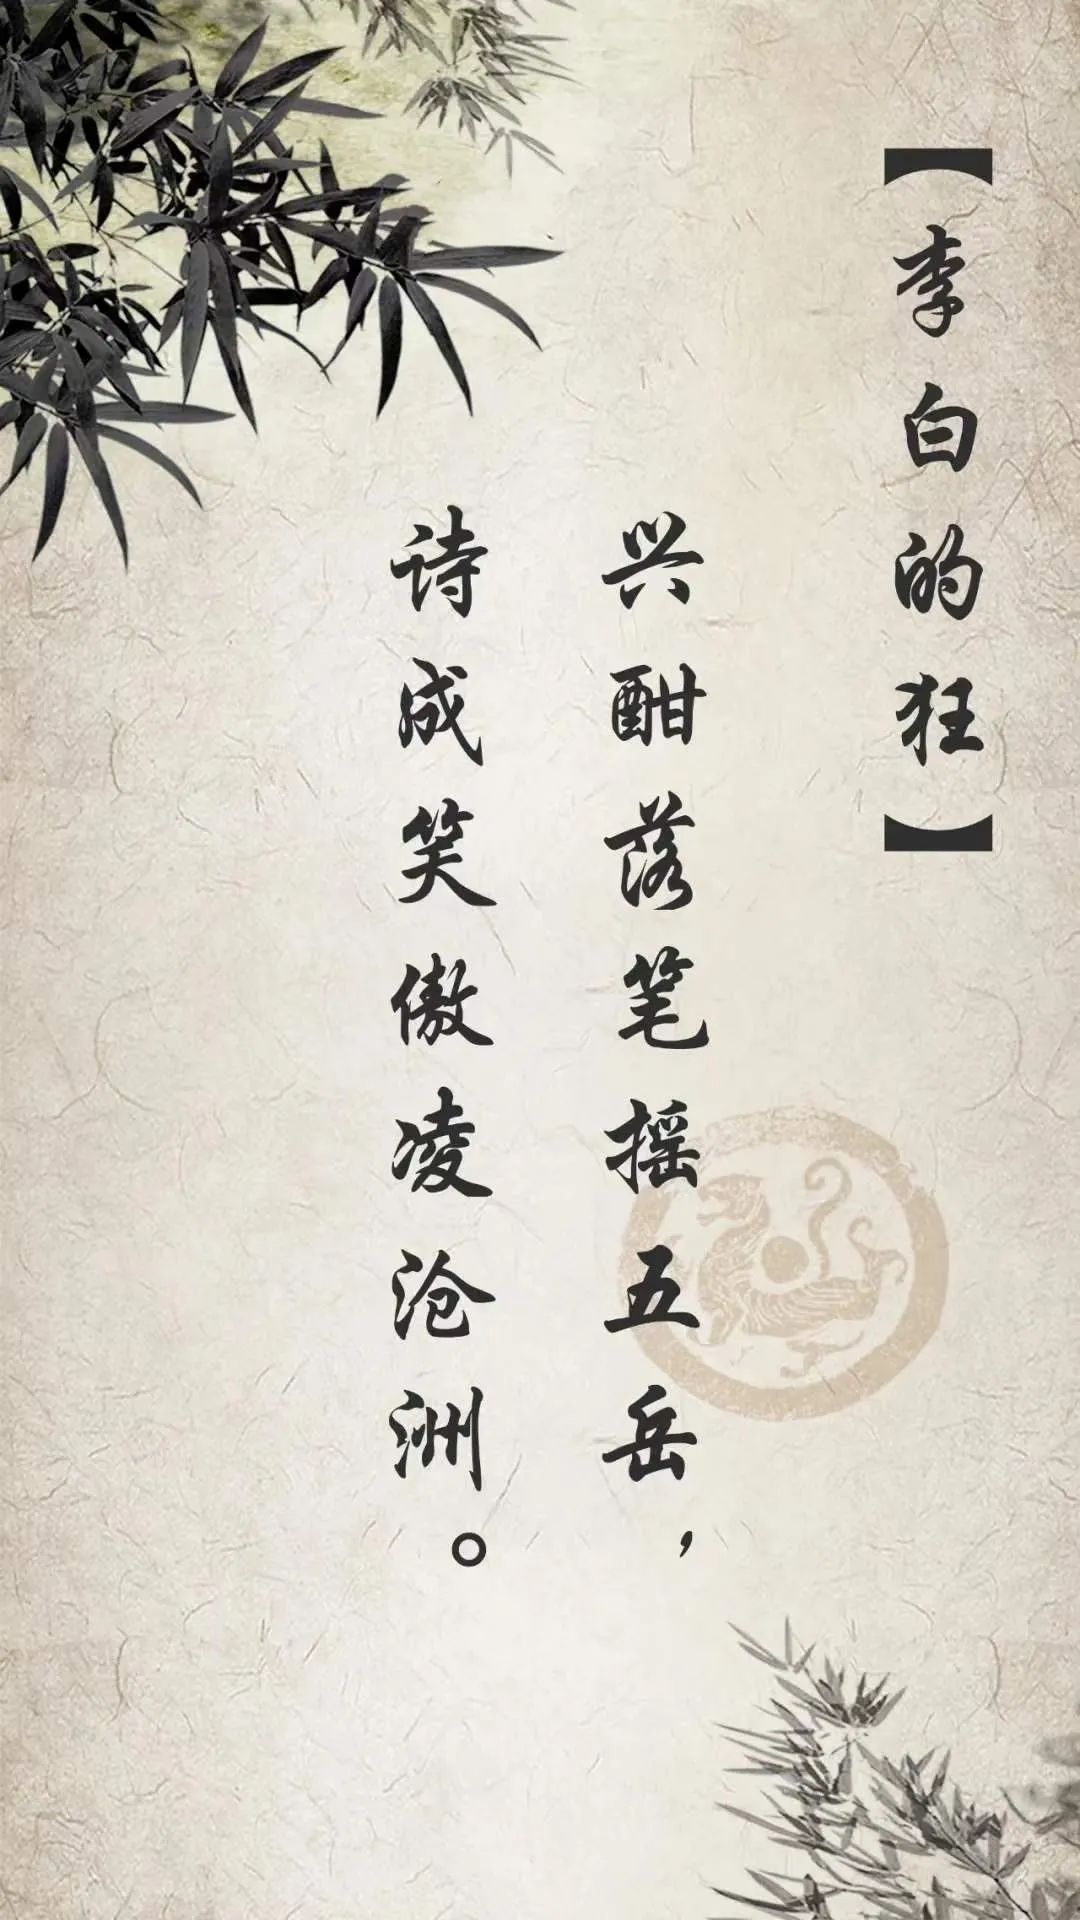 【李白的狂】
兴酣落笔摇五岳，
诗成笑傲凌沧洲。